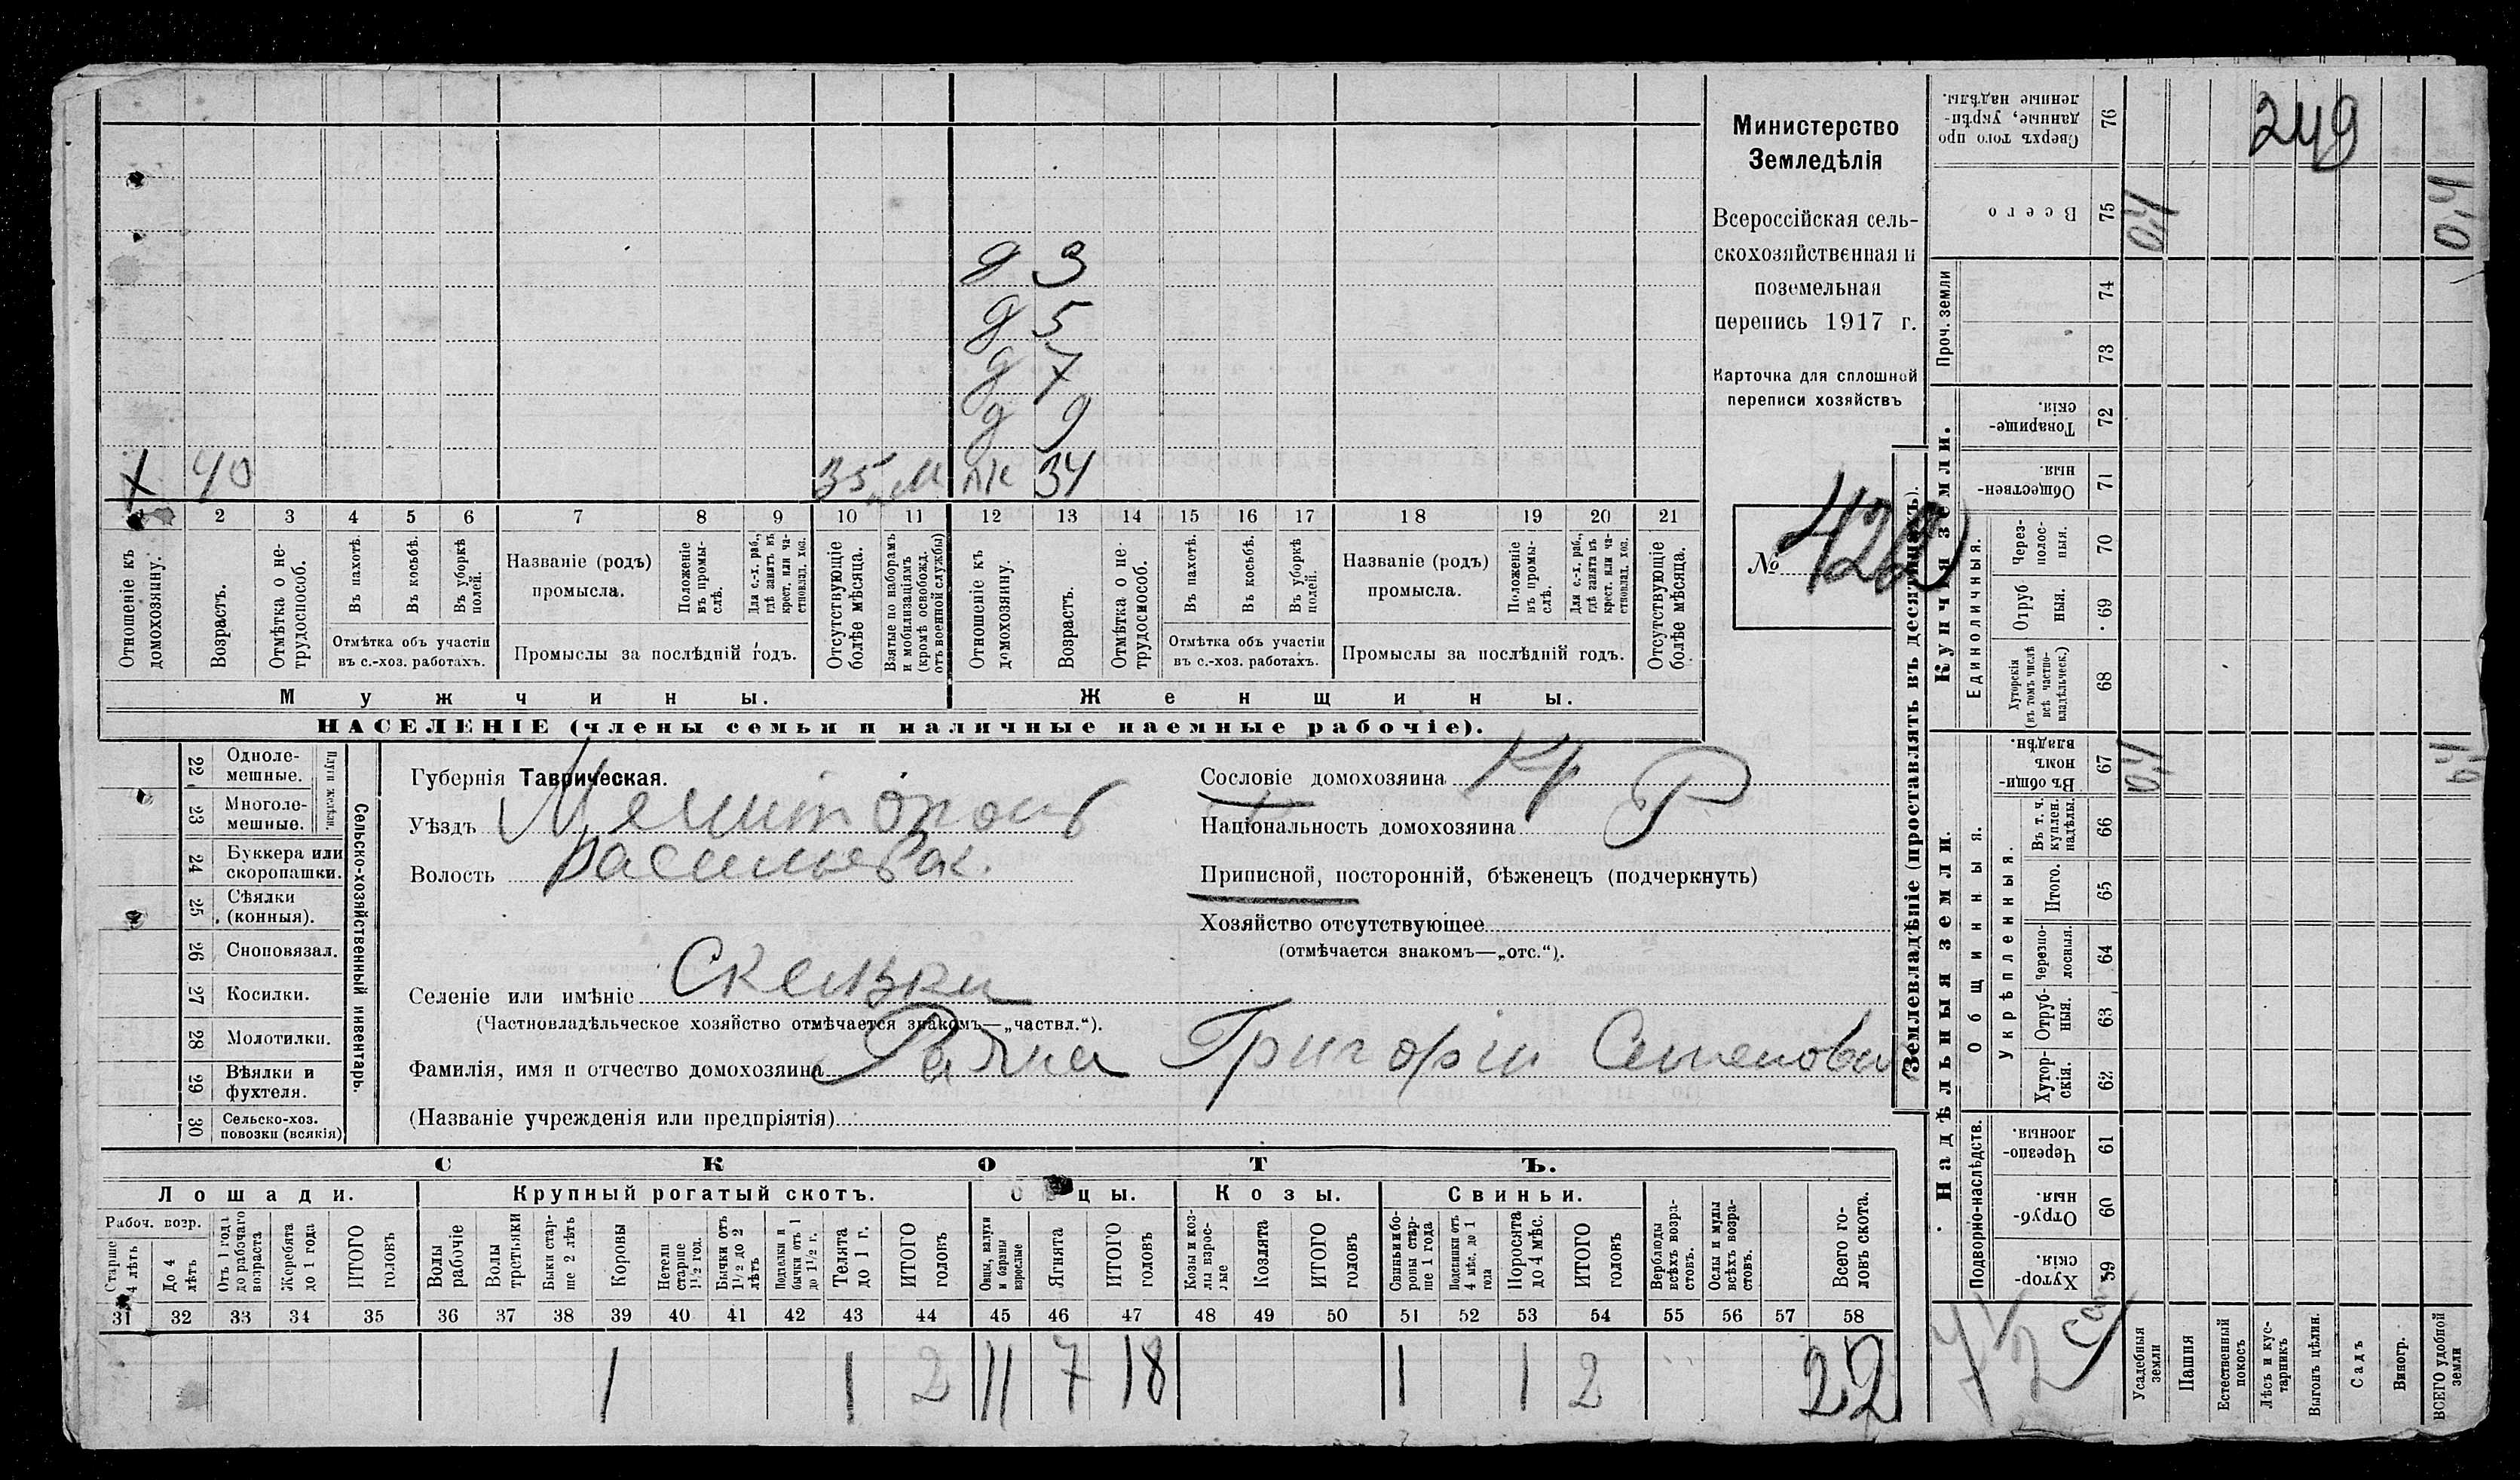 Министерство
Земледѣлія
Всероссійская сель-
скохозяйственная и
поземельная
перепись 1917 г.
Карточка для сплошной
переписи хозяйствъ
№ 422
д 3
д 5
д 7
д 9
Х 40 35 м ж 34
1 2 3 4 5 6 7 8 9 10 11 12 13 14 15 16 17 18 19 20 21
Отношеніе къ домохозяину.
Возрастъ.
Отмѣтка о не-трудоспособ.
Въ пахотѣ.
Въ косьбѣ.
Въ уборкѣ полей.
Отмѣтка объ участіи
въ с.-хоз. работахъ.
Названіе (родъ)
промысла.
Положеніе въ промы-слѣ.
Для с.-х. раб., гдѣ занятъ въ крест. или ча-стновлад. хоз.
Промыслы за послѣдній годъ.
Отсутствующіе болѣе мѣсяца.
Взятые по наборамъ и мобилизаціямъ (кромѣ освобожд. отъ военной службы)
Отношеніе къ домохозяину.
Возрастъ.
Отмѣтка о не-трудоспособ.
Въ пахотѣ.
Въ косьбѣ.
Въ уборкѣ полей.
Отмѣтка объ участіи
въ с.-хоз. работахъ.
Названіе (родъ)
промысла.
Положеніе въ промы-слѣ.
Для с.-х. раб., гдѣ занята въ крест. или ча-стновлад. хоз.
Промыслы за послѣдній годъ.
Отсутствующіе болѣе мѣсяца.
Мужчины.
Женщины.
НАСЕЛЕНІЕ (члены семьи и наличные наемные рабочіе).
22 Одноле-мешные.
23 Многоле-мешные.
Плуги желѣзн.
24 Буккера или скоропашки.
25 Сѣялки (конныя).
26 Сноповязал.
27 Косилки.
28 Молотилки.
29 Вѣялки и фухтеля.
30 Сельско-хоз. повозки (всякія)
Сельско-хозяйственный инвентарь.
Губернія Таврическая.
Уѣздъ Мелитополь
Волость Васильевск.
Селеніе или имѣніе Скельки
(Частновладѣльческое хозяйство отмѣчается знакомъ—„частвл.“).
Фамилія, имя и отчество домохозяина Григорій Семенов
(Названіе учрежденія или предпріятія)
Сословіе домохозяина кр
Національность домохозяина Р
Приписной, посторонній, бѣженецъ (подчеркнуть)
Хозяйство отсутствующее
(отмѣчается знакомъ—„отс.“).
СКОТЪ.
Лошади.
Крупный рогатый скотъ.
Овцы.
Козы.
Свиньи.
Рабоч. возр.
Старше 4 лѣтъ
До 4 лѣтъ
Отъ 1 года до рабочаго возраста
Жеребята до 1 года
ИТОГО головъ
Волы рабочіе
Волы третьяки
Быки стар-ше 2 лѣтъ
Коровы
Нетели старше 1½ год.
Бычки отъ 1½ до 2 лѣтъ
Подтелки и бычки отъ 1 до 1½ г.
Телята до 1 г.
ИТОГО головъ
Овцы, валухи и бараны взрослые
Ягнята
ИТОГО головъ
Козы и коз-лы взрос-лые
Козлята
ИТОГО головъ
Свиньи и бо-ровы стар-ше 1 года
Подсвинки отъ 4 мѣс. до 1 года
Поросята до 4 мѣс.
ИТОГО головъ
Верблюды всѣхъ возра-стовъ.
Ослы и мулы всѣхъ возра-стовъ.
Всего го-ловъ скота.
31 32 33 34 35 36 37 38 39 40 41 42 43 44 45 46 47 48 49 50 51 52 53 54 55 56 57 58
1 1 2 11 7 18 1 1 2 22
Землевладѣніе (проставлять въ десятинахъ).
Купчія земли.
Надѣльныя земли.
Проч. земли
Единоличныя.
Общинныя.
Укрѣпленныя.
Подворно-наслѣдств.
Сверхъ того про-данные, укрѣп-ленные надѣлы. 76
Всего 75
74
73
Товарище-скія. 72
Обществен-ныя. 71
Через-полос-ныя. 70
Отруб-ныя. 69
Хуторскія (въ томъ числѣ всѣ частно-владѣльческ.) 68
Въ общин-номъ владѣн. 67
Въ т. ч. куплен. надѣлы. 66
Итого. 65
Черезпо-лосныя. 64
Отруб-ныя. 63
Хутор-скія. 62
Черезпо-лосныя. 61
Отруб-ныя. 60
Хутор-скія. 59
249
0,4
0,4
0,4
0,4
Усадебныя земли
Пашня
Естественный покосъ
Лѣсъ и кус-тарникъ
Выгонъ цѣлин.
Садъ
Виногр.
ВСЕГО удобной земли